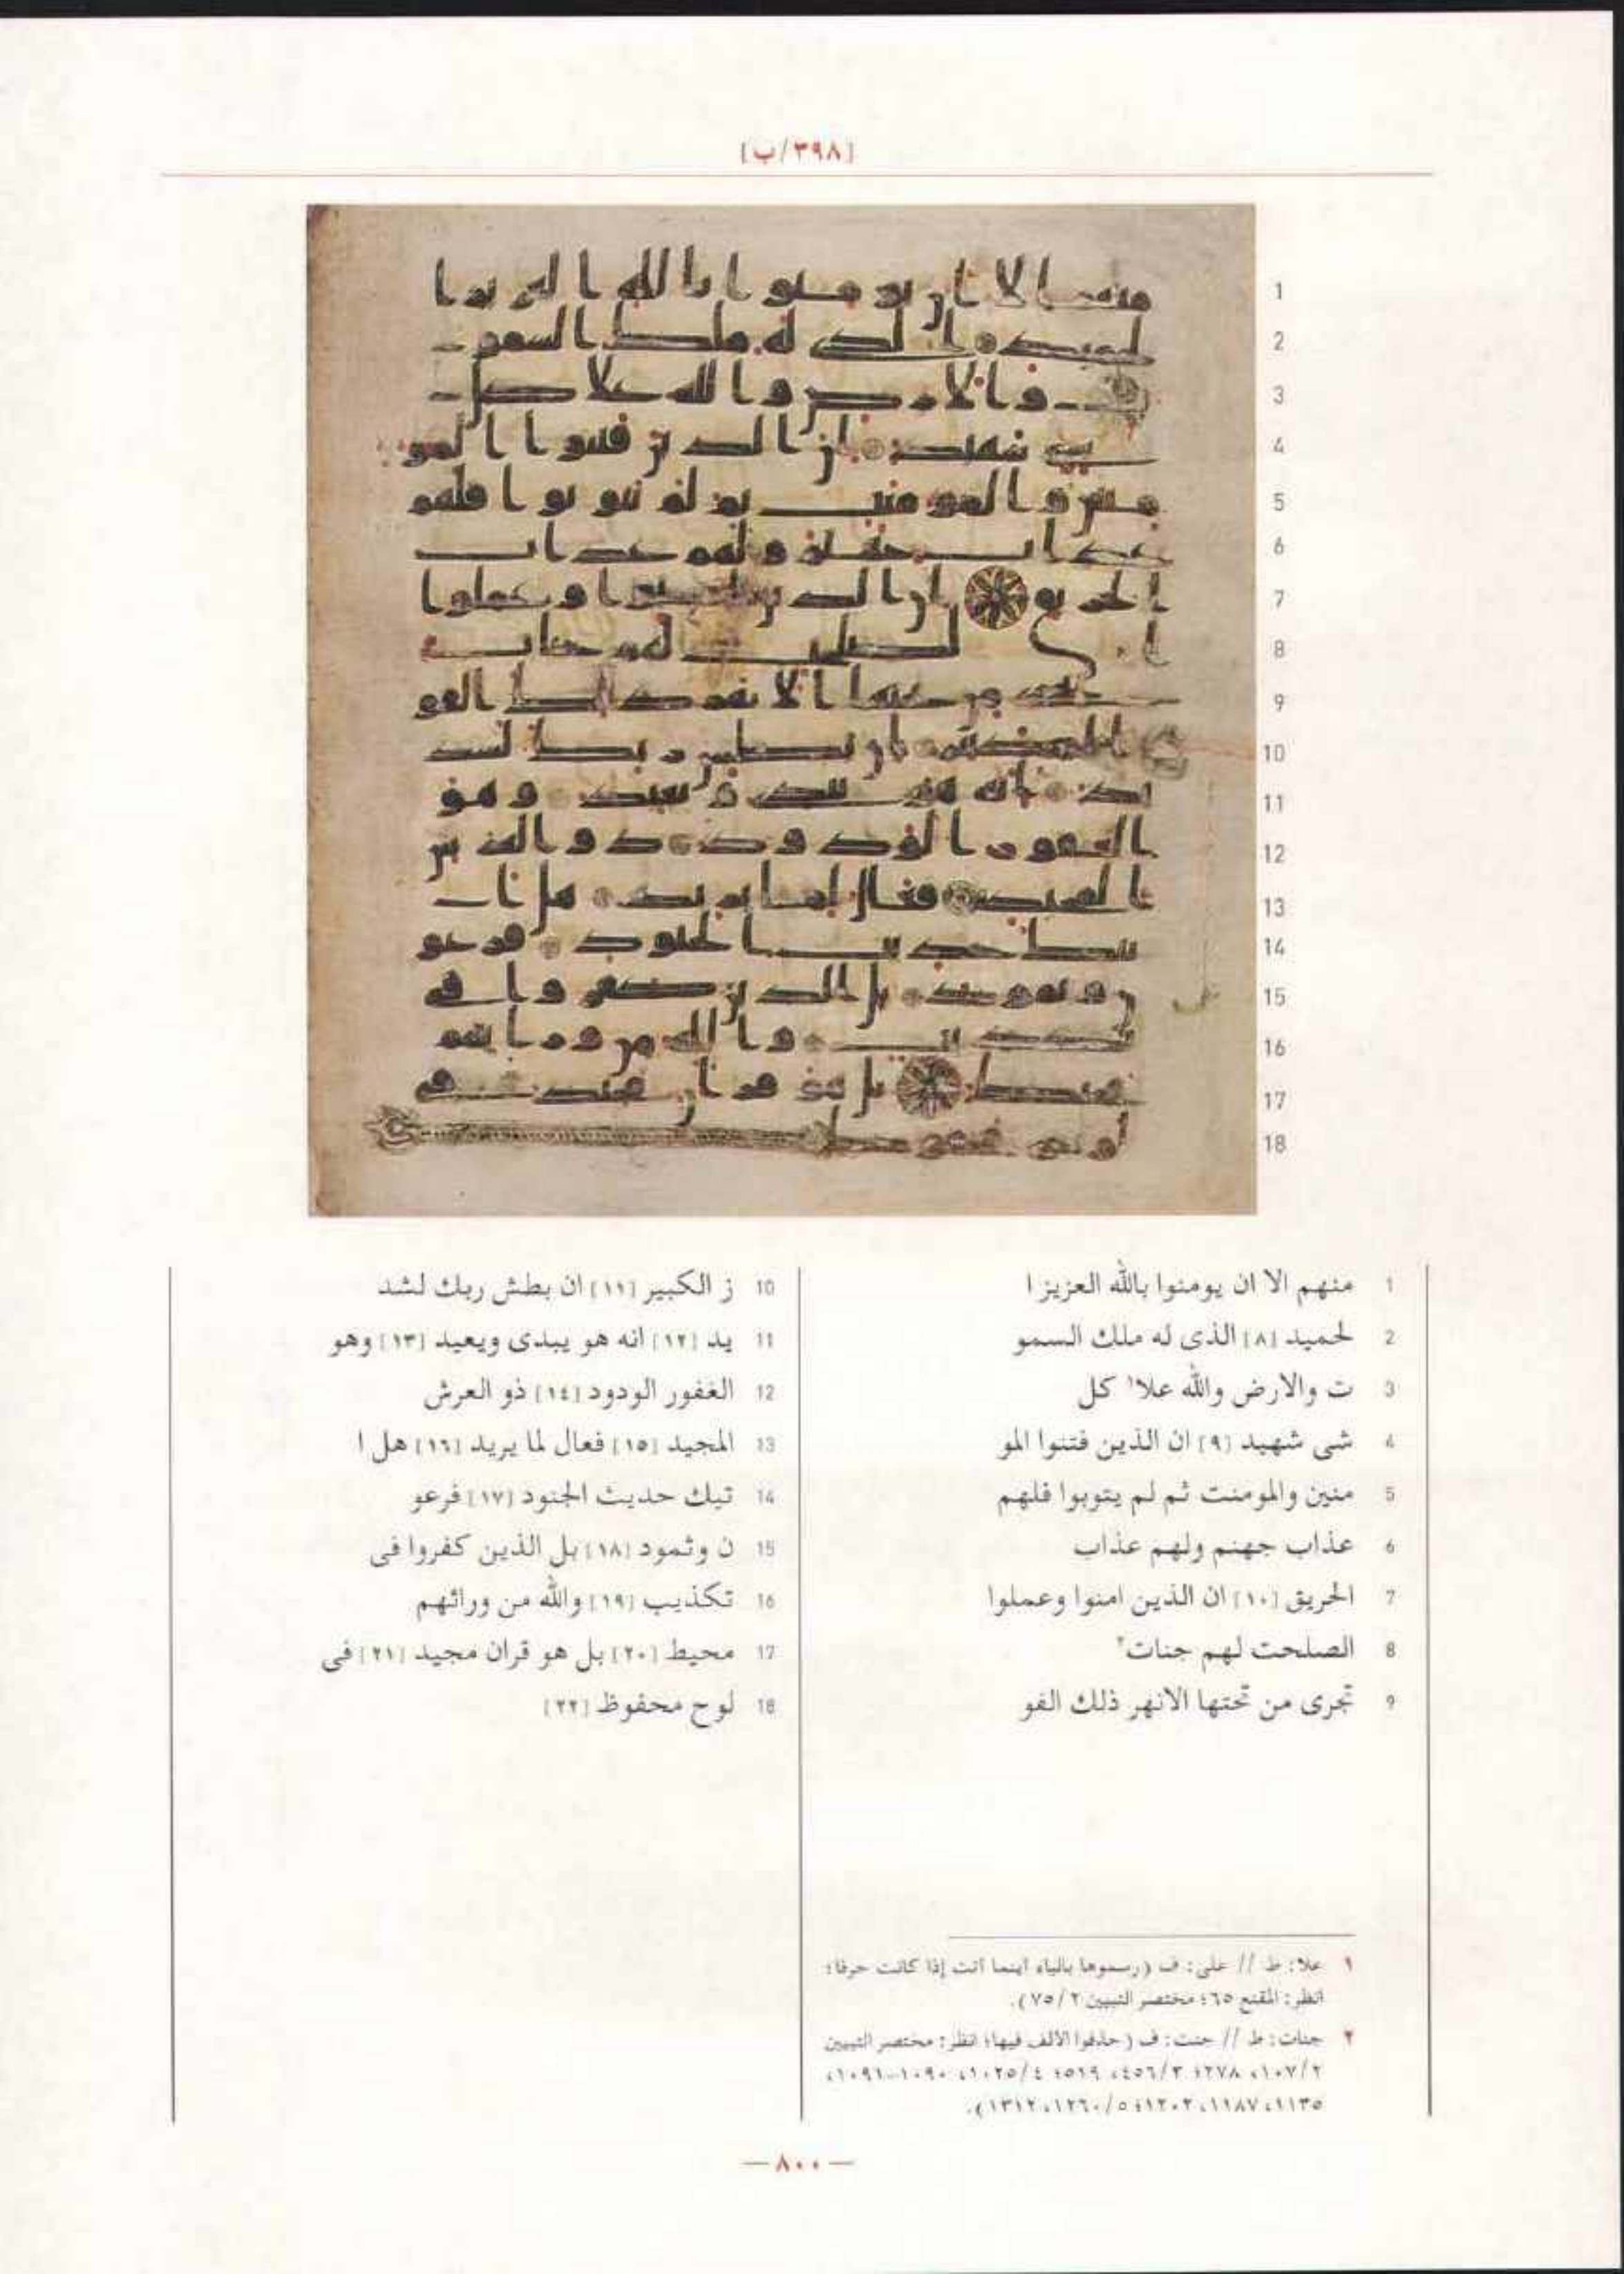 [٣٩٨/ب]
1 منهم الا ان يومنوا بالله العزيز ا
2 لحميد [٨] الذى له ملك السمو
3 ت والارض والله علا١ كل
4 شى شهيد [٩] ان الذين فتنوا المو
5 منين والمومنت ثم لم يتوبوا فلهم
6 عذاب جهنم ولهم عذاب
7 الحريق [١٠] ان الذين امنوا وعملوا
8 الصلحت لهم جنات٢
9 تجرى من تحتها الانهر ذلك الفو
10 ز الكبير [١١] ان بطش ربك لشد
11 يد [١٢] انه هو يبدى ويعيد [١٣] وهو
12 الغفور الودود [١٤] ذو العرش
13 المجيد [١٥] فعال لما يريد [١٦] هل ا
14 تيك حديث الجنود [١٧] فرعو
15 ن وثمود [١٨] بل الذين كفروا فى
16 تكذيب [١٩] والله من ورائهم
17 محيط [٢٠] بل هو قران مجيد [٢١] فى
18 لوح محفوظ [٢٢]
١ علا: ط // على: ف (رسموها بالياء اينما اتت إذا كانت حرفا؛
انظر: المقنع ٦٥؛ مختصر التبيين ٧٥/٢).
٢ جنات: ط // جنت: ف (حذفوا الالف فيها؛ انظر: مختصر التبيين
١٠٧/٢، ٢٧٨؛ ٤٥٦/٣، ٥١٩؛ ١٠٢٥/٤، ١٠٩٠-١٠٩١،
١١٣٥، ١١٨٧، ١٢٠٢؛ ١٢٦٠/٥، ١٣١٢).
— ٨٠٠ —